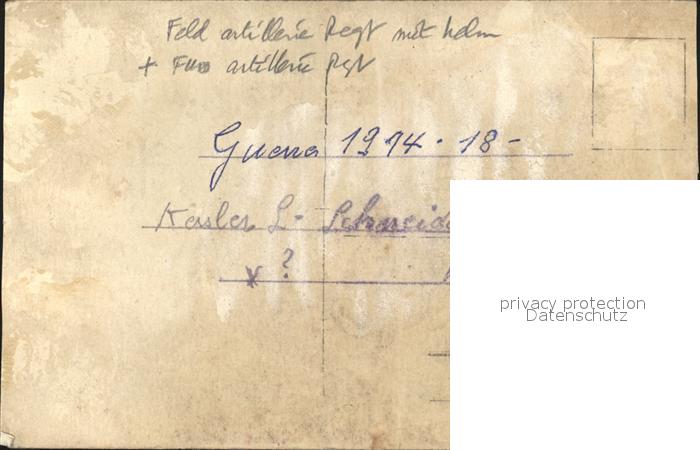 Feld artillerie Regt mit helm
+ Fuss artillerie Rgt
Guerra 1914 - 18 -
Kessler L - Schneid
x ?
privacy protection
Datenschutz